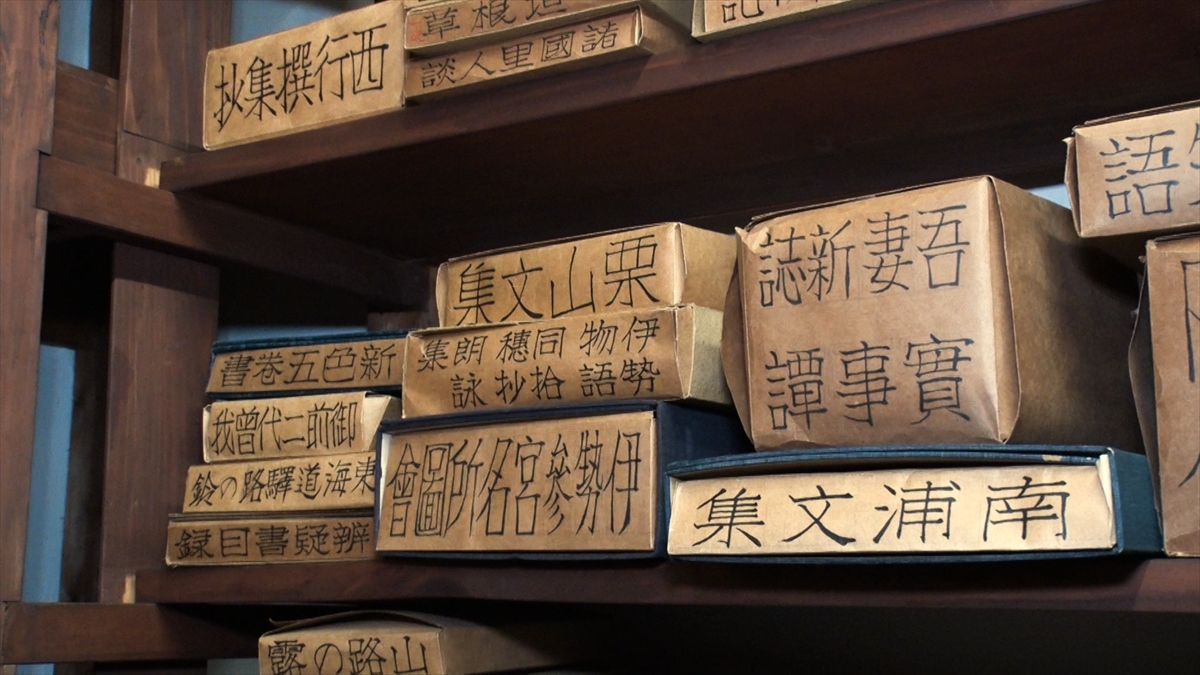 西行撰集抄
垣根草
諸國里人談
栗山文集
伊勢物語同拾穗抄朗詠集
吾妻新誌
實事譚
新色五巻書
御前二代曾我
東海道驛路の鈴
辨疑書目録
伊勢參宮名所圖會
南浦文集
語
山路の露